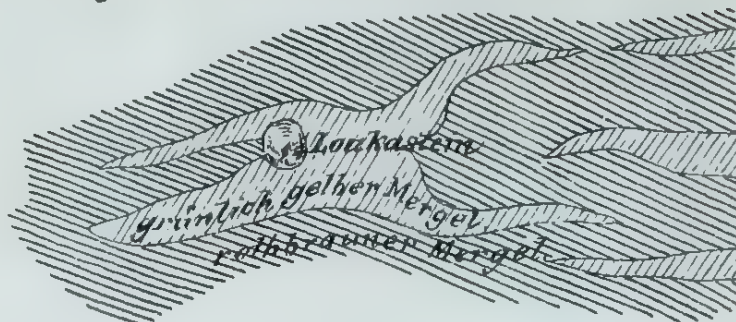 Loukastein
grünlich gelber Mergel
rothbrauner Mergel